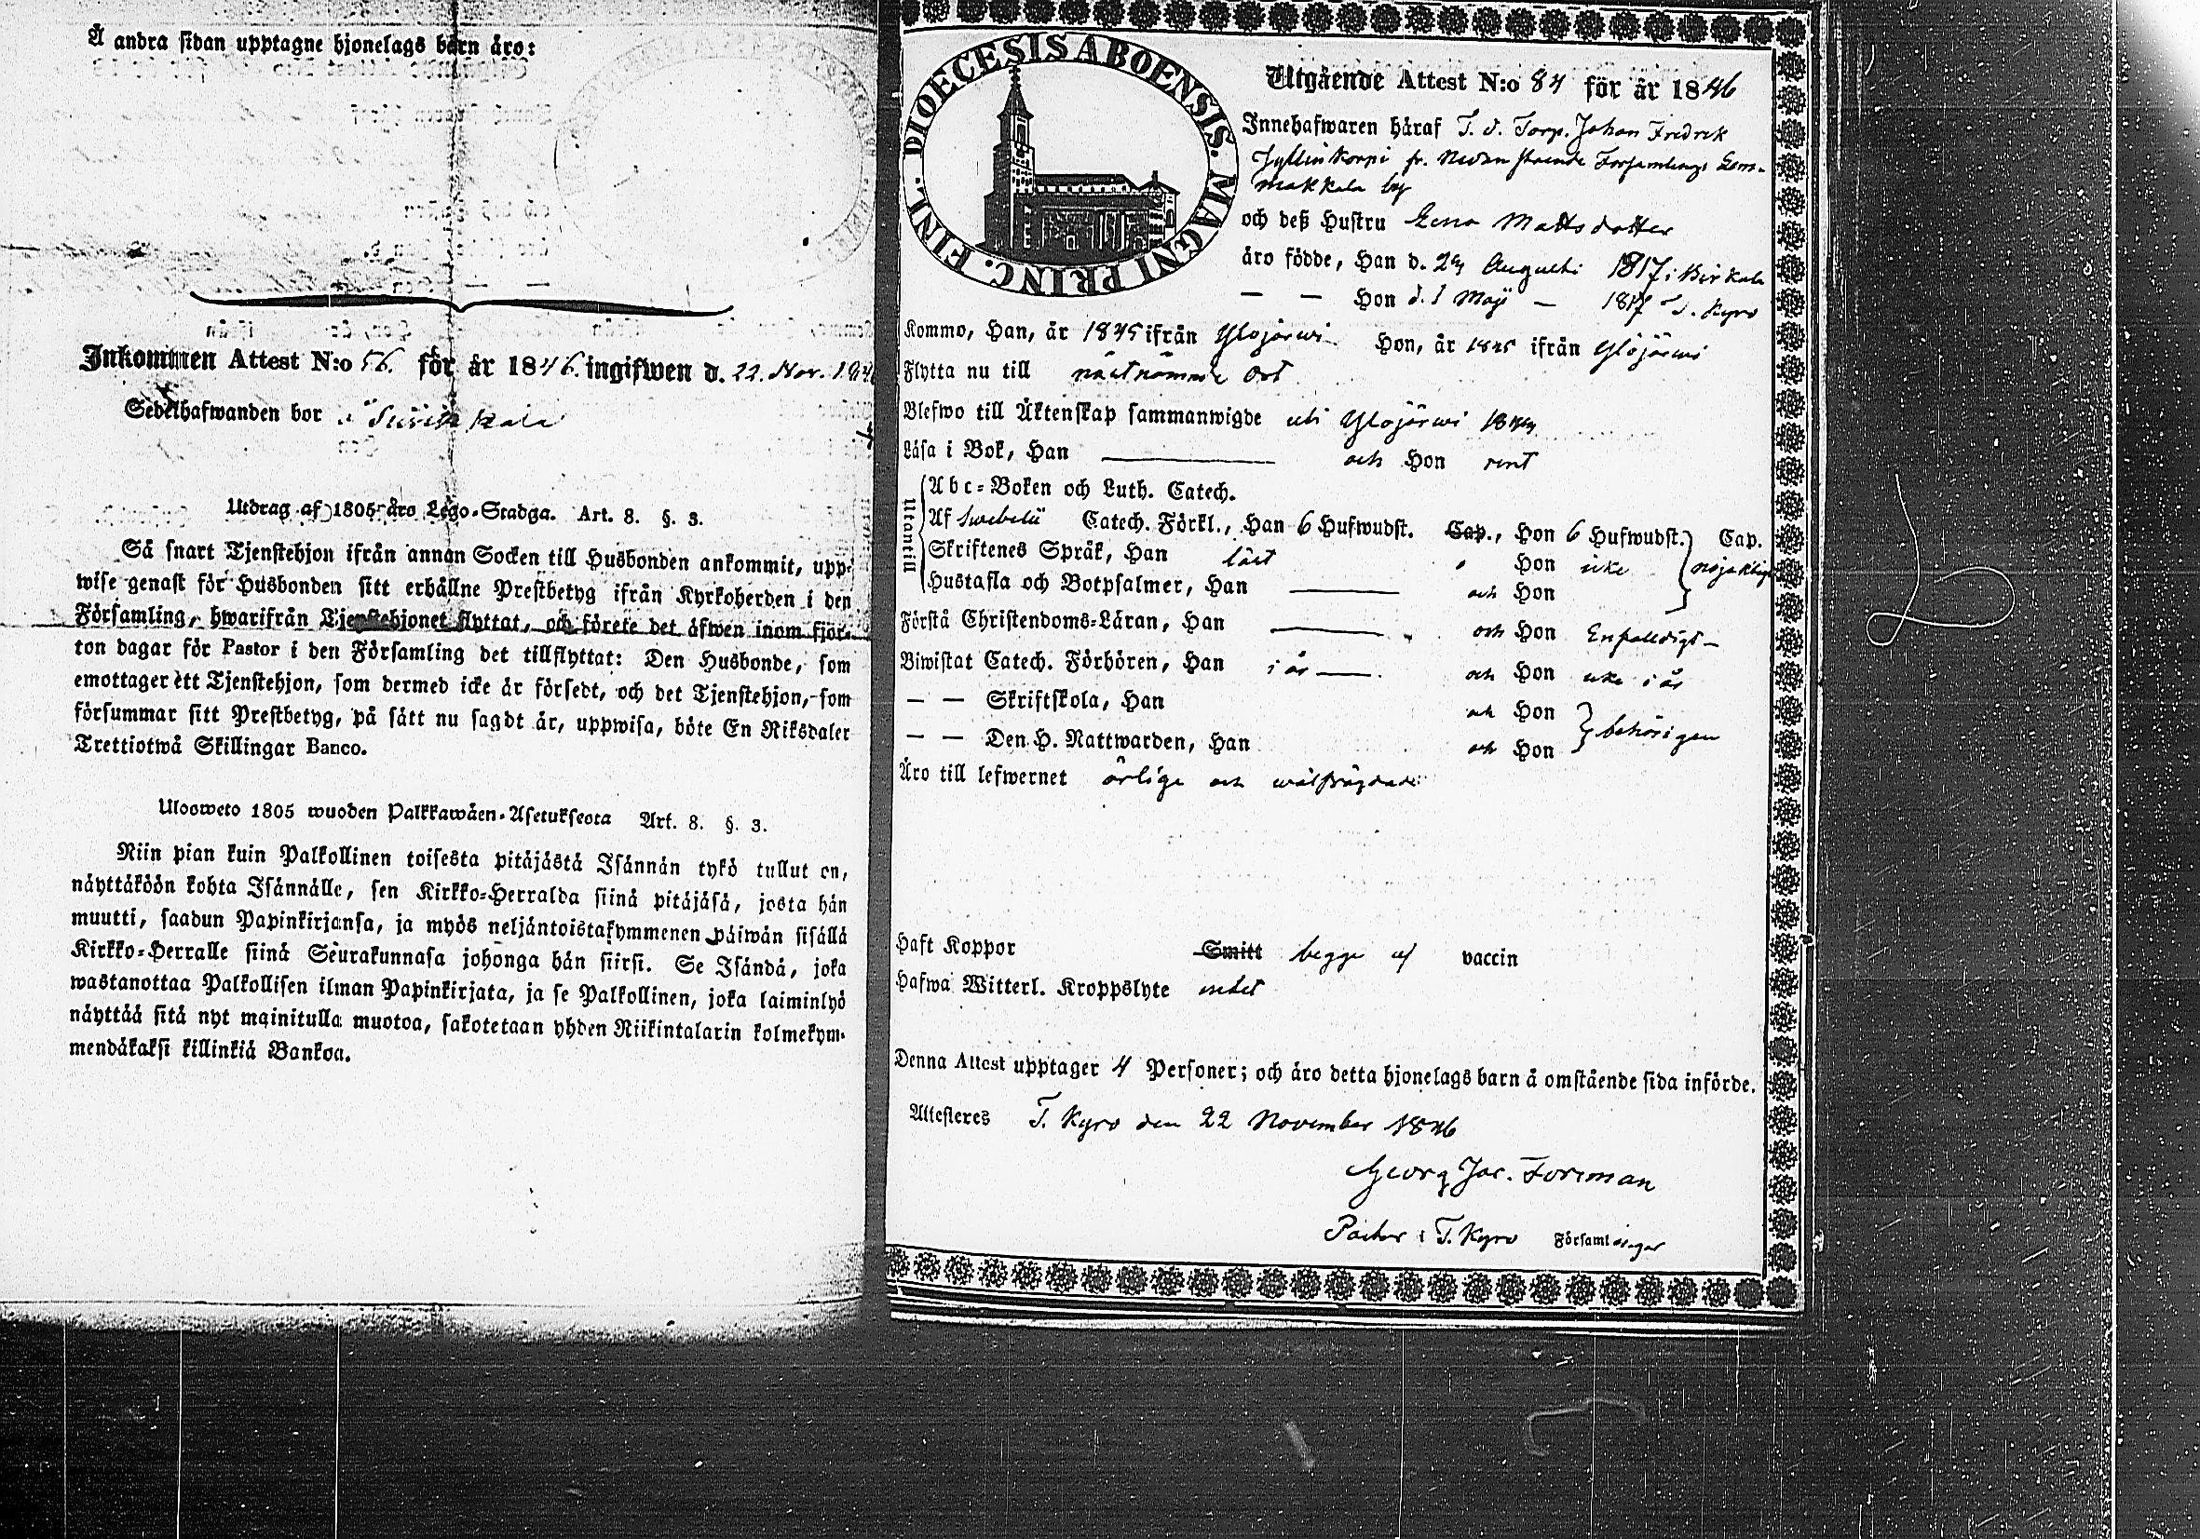 Å andra sidan upptagne hjonelags barn äro:
Inkommen Attest N:o 56. för år 1846. ingifwen d. 22. Nov. 1846
Sedelhafwanden bor i
Utdrag af 1805 års Lego-Stadga. Art. 8. §. 3.
Så snart Tjenstehjon ifrån annan Socken till Husbonden ankommit, upp-
wise genast för Husbonden sitt erhållne Prestbetyg ifrån Kyrkoherden i den
Församling, hwarifrån Tjenstehjonet flyttat, och förete det äfwen inom fjor-
ton dagar för Pastor i den Församling det tillflyttat: Den Husbonde, som
emottager ett Tjenstehjon, som dermed icke är försedt, och det Tjenstehjon, som
försummar sitt Prestbetyg, på sätt nu sagdt är, uppwisa, böte En Riksdaler
Trettiotwå Skillingar Banco.
Ulosweto 1805 wuoden Palkkawäen-Asetuksesta Art. 8. §. 3.
Niin pian kuin Palkollinen toisesta pitäjästä Isännän tykö tullut on,
näyttäköön kohta Isännälle, sen Kirkko-Herralda siinä pitäjäsä, josta hän
muutti, saadun Papinkirjansa, ja myös neljäntoistakymmenen päiwän sisällä
Kirkko-Herralle siinä Seurakunnasa johonga hän siirsi. Se Isändä, joka
wastanottaa Palkollisen ilman Papinkirjata, ja se Palkollinen, joka laiminlyö
näyttää sitä nyt mainitulla muotoa, sakotetaan yhden Riikintalarin kolmekym-
mendäkaksi killinkiä Bankoa.
DIOECESIS ABOENSIS. MAGNI PRINC. FINL.
Utgående Attest N:o 84 för år 1846
Innehafwaren häraf T. d. Torp. Johan Fredrik
Jyllinkorpi fr. Nedanstående Församlings
makkala by
och deß Hustru Lena Mattsdotter
äro födde, Han d. 24 Augusti 1817 i Birkala
— — Hon d. 1 Maji — 1817 T. Kyro
Kommo, Han, år 1845 ifrån Ylöjärwi Hon, år 1845 ifrån Ylöjärwi
Flytta nu till nästnämnde Ort
Blefwo till Äktenskap sammanwigde uti Ylöjärwi 1844
Läsa i Bok, Han ——— och Hon rent
Utantill
Abc-Boken och Luth. Catech.
Af Swebelii Catech. Förkl., Han 6 Hufwudst. Cap., Hon 6 Hufwudst. Cap.
Skriftenes Språk, Han läst Hon icke nöjaktigt
Hustafla och Botpsalmer, Han ——— och Hon
Förstå Christendoms-Läran, Han ——— och Hon Enfaldigt
Biwistat Catech. Förhören, Han i år ——— och Hon icke i år
— — Skriftskola, Han och Hon
— — Den H. Nattwarden, Han och Hon behörigen
Äro till lefwernet ärlige och wälfrägdade
Haft Koppor Smitt begge af vaccin
Hafwa Witterl. Kroppslyte intet
Denna Attest upptager 4 Personer; och äro detta hjonelags barn å omstående sida införde.
Attesteres T. Kyro den 22 November 1846
Georg Jac. Forsman
Pastor i T. Kyro Församlingar